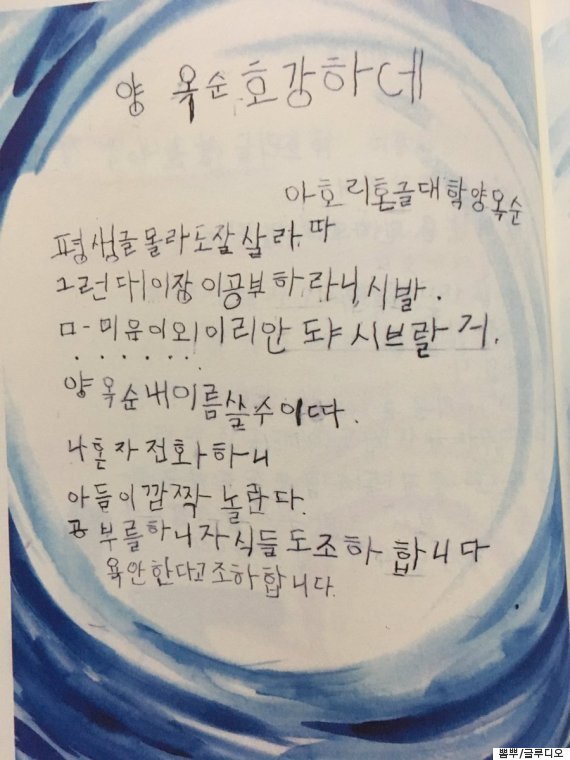 양 옥순 호강하네
아호리 혼글대학 양옥순
평생글 몰라도잘 살라따
그런대 이장 이공부 하라니, 시발.
ㅁ- 미음이 외 이리 안 도냐 시브랄 거.
양 옥순 내이름 쓸수 이따.
나혼자 전화 하니
아듬이 깜짝 놀란다.
공부를하니 자식들도조하 합니다
욕안한다고조하합니다.
뽐뿌/글루디오